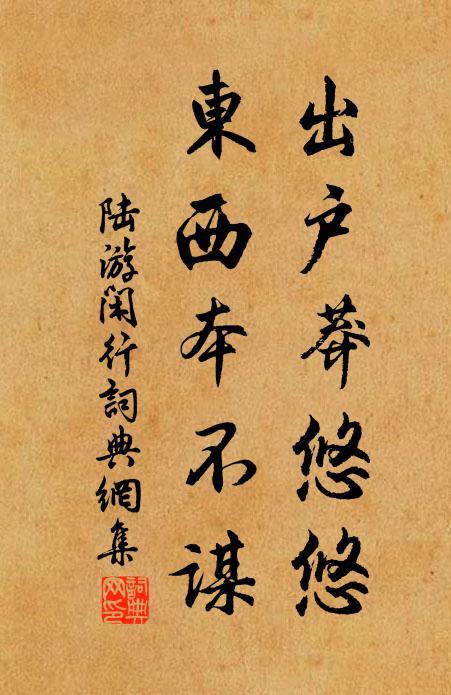 出户莽悠悠
東西本不謀
陆游閑行詞典網集
詞典网印